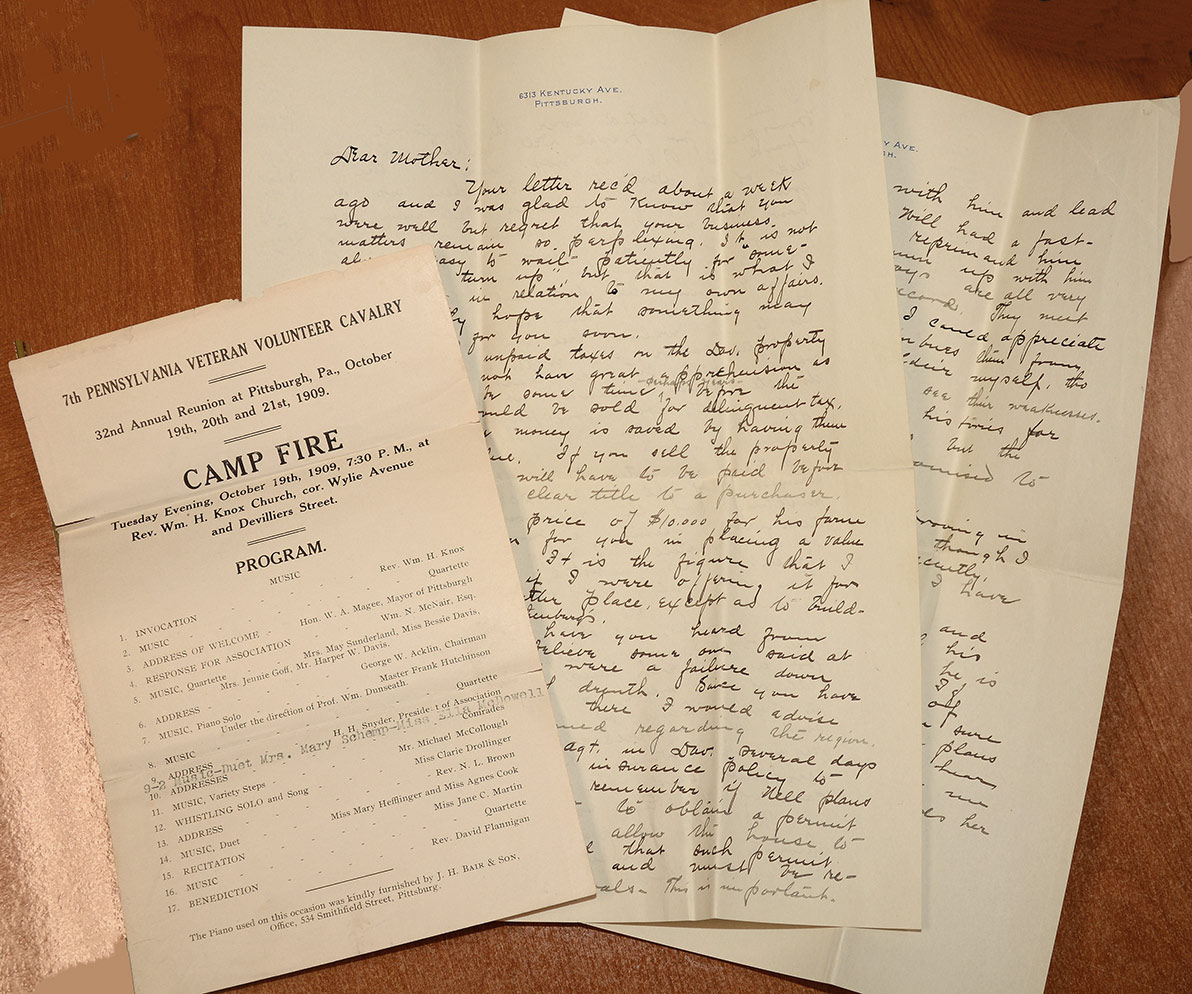 7th PENNSYLVANIA VETERAN VOLUNTEER CAVALRY
32nd Annual Reunion at Pittsburgh, Pa., October
19th, 20th and 21st, 1909.
CAMP FIRE
Tuesday Evening, October 19th, 1909, 7:30 P. M., at
Rev. Wm. H. Knox Church, cor. Wylie Avenue
and Devilliers Street.
PROGRAM.
MUSIC
1. INVOCATION - Rev. Wm. H. Knox
2. MUSIC - Quartette
3. ADDRESS OF WELCOME - Hon. W. A. Magee, Mayor of Pittsburgh
4. RESPONSE FOR ASSOCIATION - Wm. N. McNair, Esq.
5. MUSIC, Quartette - Mrs. May Sunderland, Miss Bessie Davis,
Mrs. Jennie Goff, Mr. Harper W. Davis.
6. ADDRESS - George W. Acklin, Chairman
7. MUSIC, Piano Solo - Master Frank Hutchinson
Under the direction of Prof. Wm. Dunseath.
8. MUSIC - Quartette
9. ADDRESS - H. H. Snyder, President of Association
9-2 Music-Duet Mrs. Mary Schemp-Miss Ella McDowell
10. ADDRESSES - Comrades
11. MUSIC, Variety Steps - Mr. Michael McCollough
12. WHISTLING SOLO and Song - Miss Clarie Drollinger
13. ADDRESS - Rev. N. L. Brown
14. MUSIC, Duet - Miss Mary Hefflinger and Miss Agnes Cook
15. RECITATION - Miss Jane C. Martin
16. MUSIC - Quartette
17. BENEDICTION - Rev. David Flannigan
The Piano used on this occasion was kindly furnished by J. H. BAIR & SON,
Office, 534 Smithfield Street, Pittsburg.
6313 KENTUCKY AVE.
PITTSBURGH.
Dear Mother:
Your letter rec'd about a week
ago and I was glad to know that you
were well but regret that your business
matters remain so perplexing. It is not
easy to wait patiently for "some-
turn up" but that is what I
in relation to my own affairs.
hope that something may
for you soon.
unpaid taxes on the Dav. property
not have great apprehension as
be some time, perhaps years before the
would be sold for delinquent tax.
money is saved by having them
If you sell the property
will have to be paid before
clear title to a purchaser.
price of $10.000 for his farm
for you in placing a value
It is the figure that I
if I were offering it for
Place, except as to build-
have you heard from
believe some one said at
were a failure down
drouth. Since you have
there I would advise
regarding the region.
agt. in Dav. several days
insurance policy to
remember if Nell plans
to obtain a permit
allow the house to
that such permit
and must be re-
This is important.
Y AVE.
H.
with him and lead
Will had a fast-
reprimand him
up with him
are all very
record. They meet
I could appreciate
them from
myself, tho
see their weaknesses.
his fires for
but the
promised to
in
though I
recently,
I have
and
his
he is
If
of
sure
plans
hear
me
her